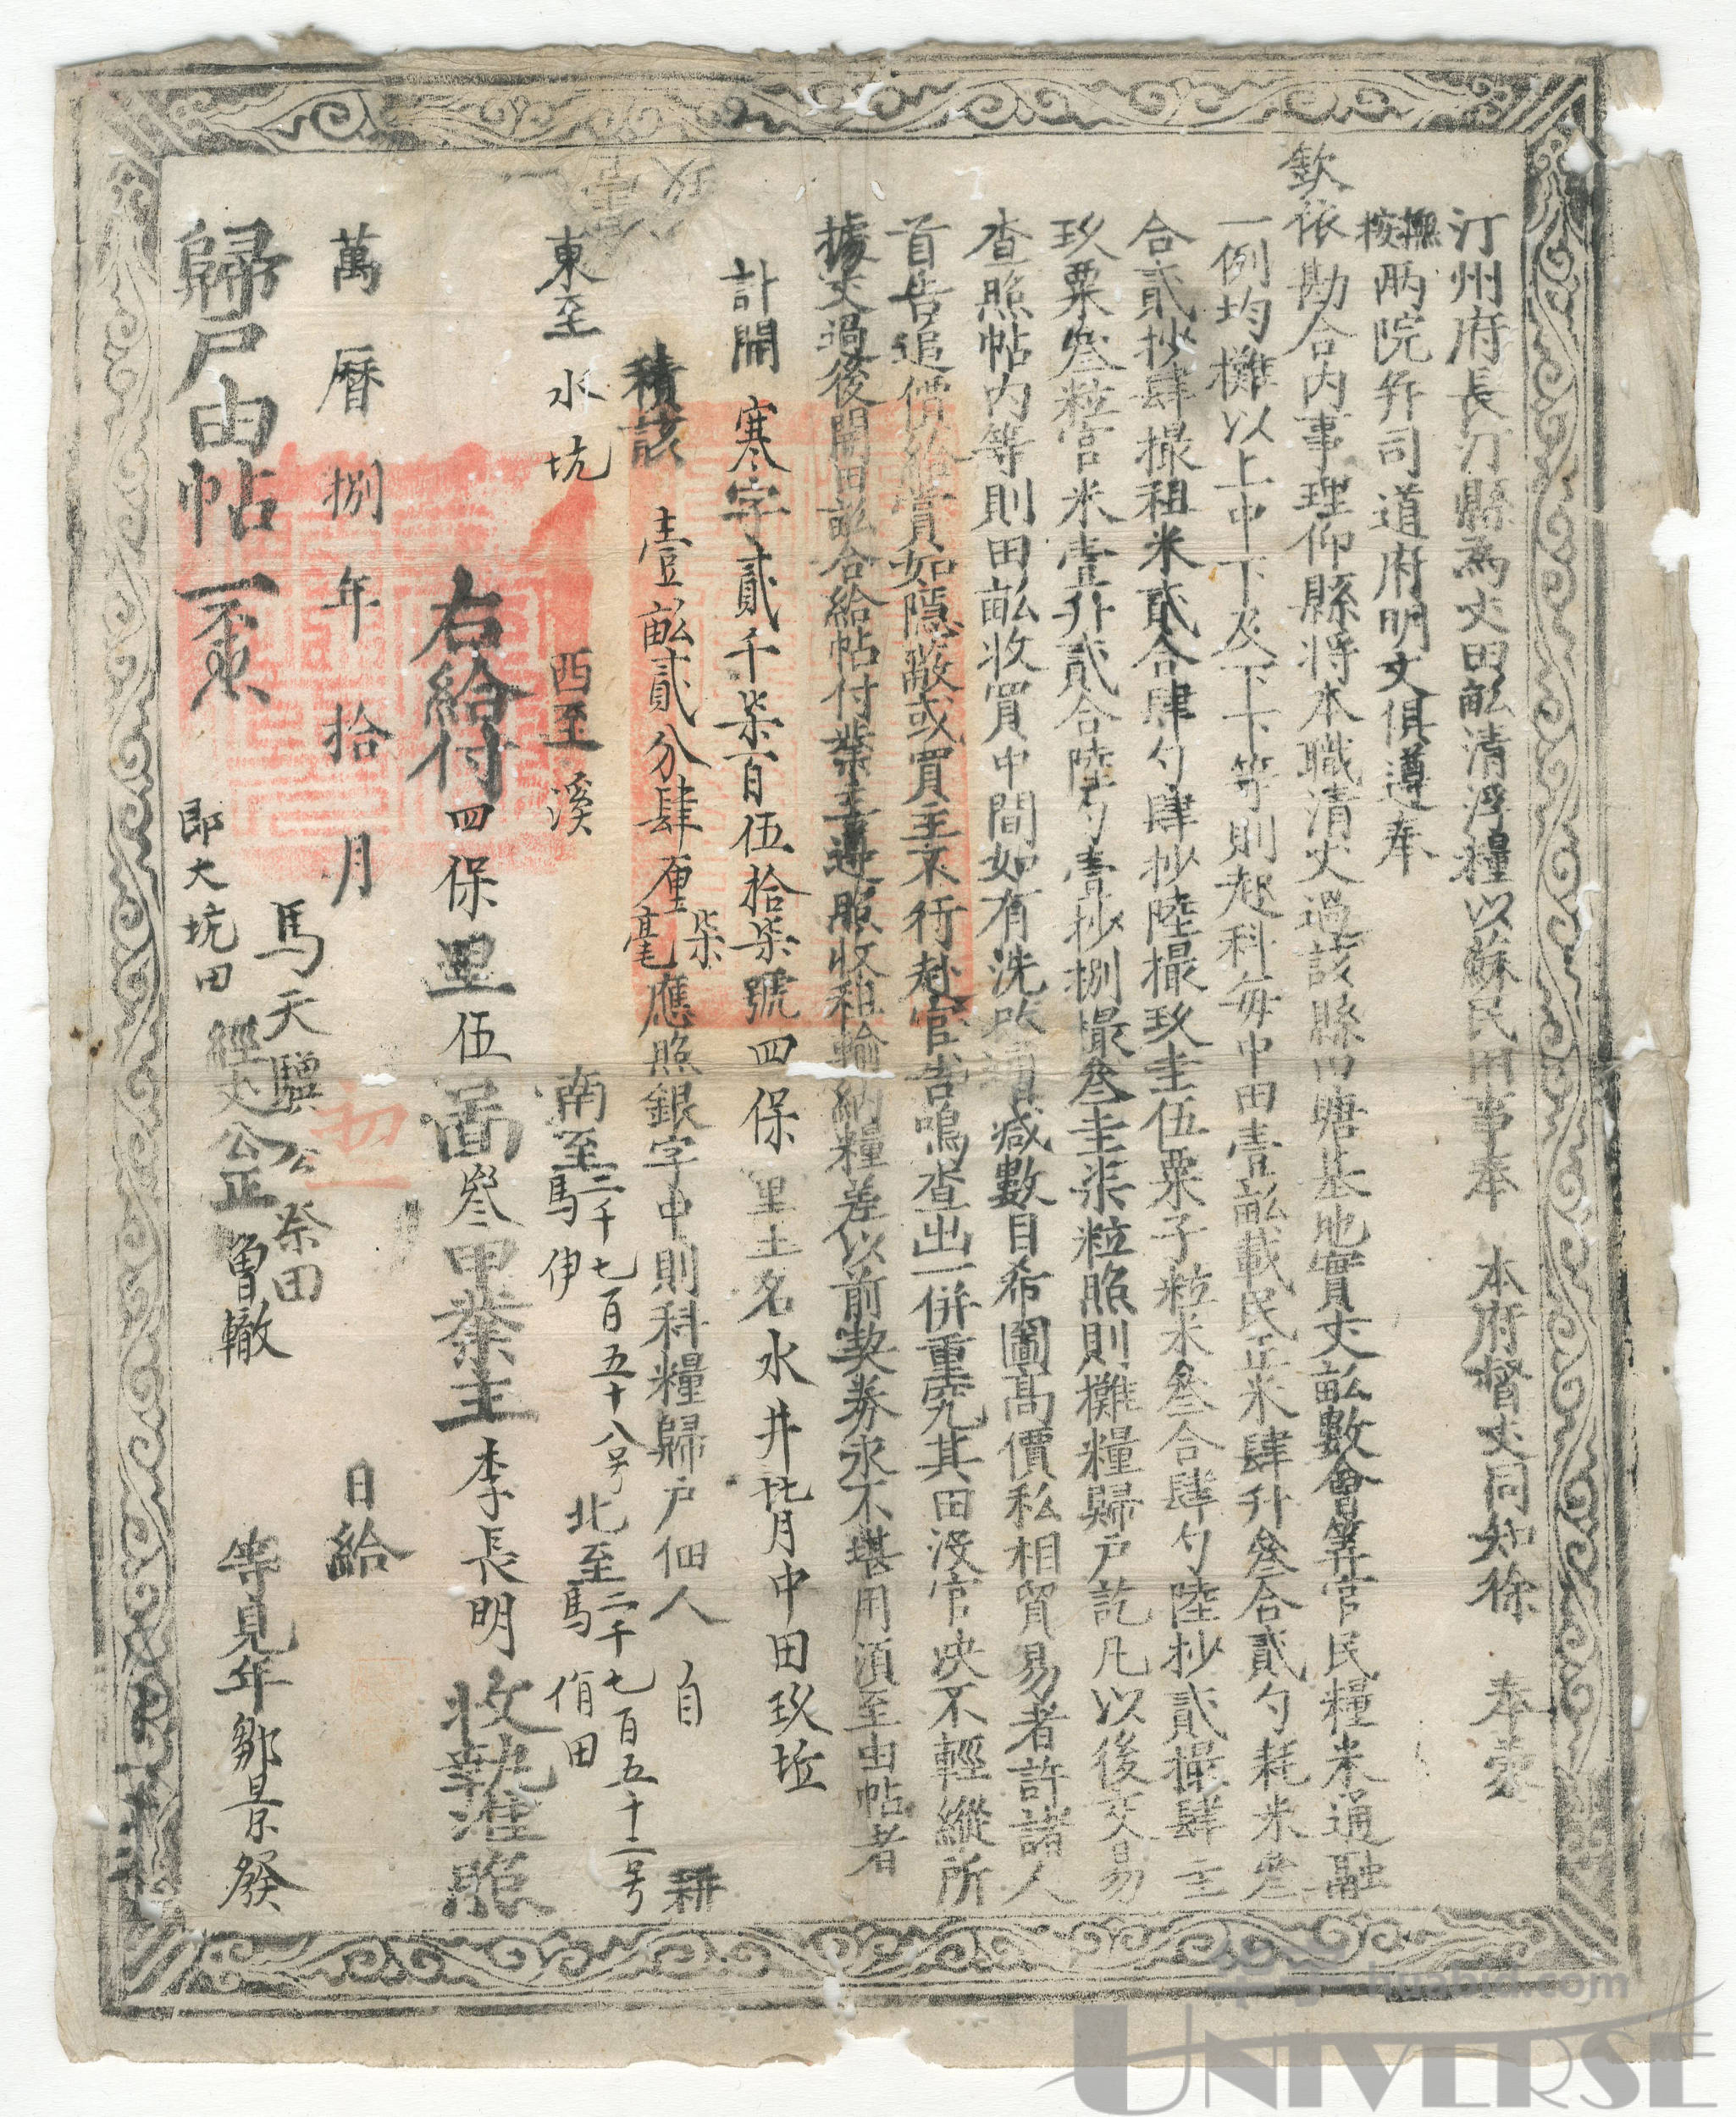 汀州府長汀縣為丈田畝清浮糧以蘇民困事奉 本府督丈同知徐 奉蒙
撫按兩院并司道府明文俱遵奉
欽依勘合內事理仰縣將本職清丈過該縣田塘基地實丈畝數會筭官民糧米通融
一例均攤以上中下及下下等則起科每中田壹畝載民正米肆升叄合貳勺耗米叄
合貳抄肆撮租米貳合肆勺肆抄陸撮玖圭伍粟子粒米叄合肆勺陸抄貳撮肆圭
玖粟叄粒官米壹升貳合陸勺壹抄捌撮叄圭柒粒照則攤糧歸戶訖凡以後交易
查照帖內等則田畝收買中間如有洗改增減數目希圖高價私相貿易者許諸人
首告追價給賞如隱蔽或買主不行赴官告鳴查出一併重究其田沒官決不輕縱所
據丈過後開田畝合給帖付業主遵照收租輸納糧差以前契券永不堪用須至由帖者
計開 寒字貳千柒百伍拾柒號四保里土名水井毘中田玖坵
積該 壹畝貳分肆厘柒毫應照銀字中則科糧歸戶佃人 自 耕
東至水坑 西至溪 南至二千七百五十八号馬伊 北至二千七百五十二号馬佾田
右給付四保里伍啚叄甲業主李長明收執准照
萬曆捌年拾月 初一 日給
馬天驥公祭田
歸戶由帖 一張 即大坑田 經丈公正曾轍 等見年鄒景發
華宇 huabid.com
UNIVERSE